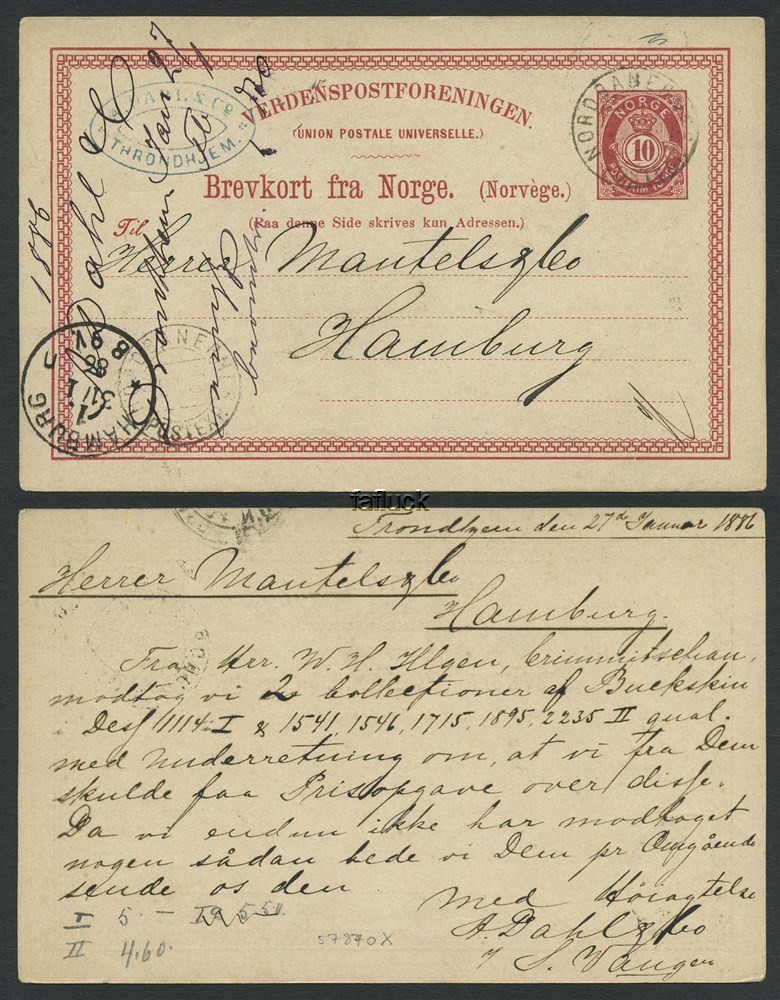 VERDENSPOSTFORENINGEN.
(UNION POSTALE UNIVERSELLE.)
Brevkort fra Norge. (Norvège.)
(Paa denne Side skrives kun Adressen.)
Til
Herrer Mantels & Co
Hamburg
NORGE
10
DAHL & Co
THRONDHJEM.
1886
Dahl
HAMBURG
1
31/1
86
8
fafluck
Trondhjem den 27d Januar 1886
Herrer Mantels & Co
Hamburg.
Fra Hrr. W. H. Ilgen, Crimmitschau,
modtog vi 2 Collectioner af Buckskin
i Dess 1114 I & 1541, 1546, 1715, 1895, 2235 II qual.
med Underretning om, at vi fra Dem
skulde faa Prisopgave over disse.
Da vi endnu ikke har modtaget
nogen sådan bede vi Dem pr Omgående
sende os den
Med Høiagtelse
A. Dahl & Co
S. Wangen
I 5 -
II 4.60.
57840X